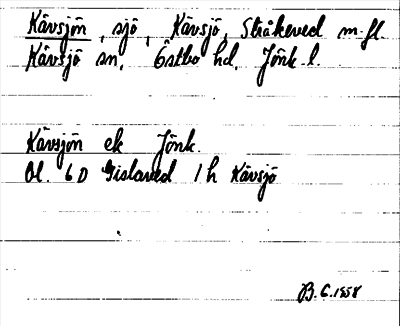 Kävsjön, sjö, Kävsjö, Stråkeved m.fl.
Kävsjö sn. Östbo hd. Jönk. l.
Kävsjön ek Jönk.
Ol. 6D Gislaved 1h Kävsjö
B.G. 1958